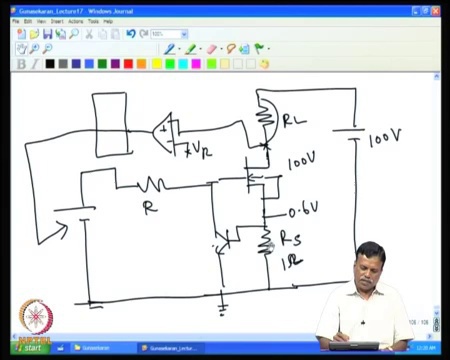 Gunasekaran_Lecture17 - Windows Journal
File Edit View Insert Actions Tools Help
100%
B I
RL
100V
+
VR
100V
R
0.6V
RS
1Ω
NPTEL
start
Gunasekaran
Gunasekaran_Lectur...